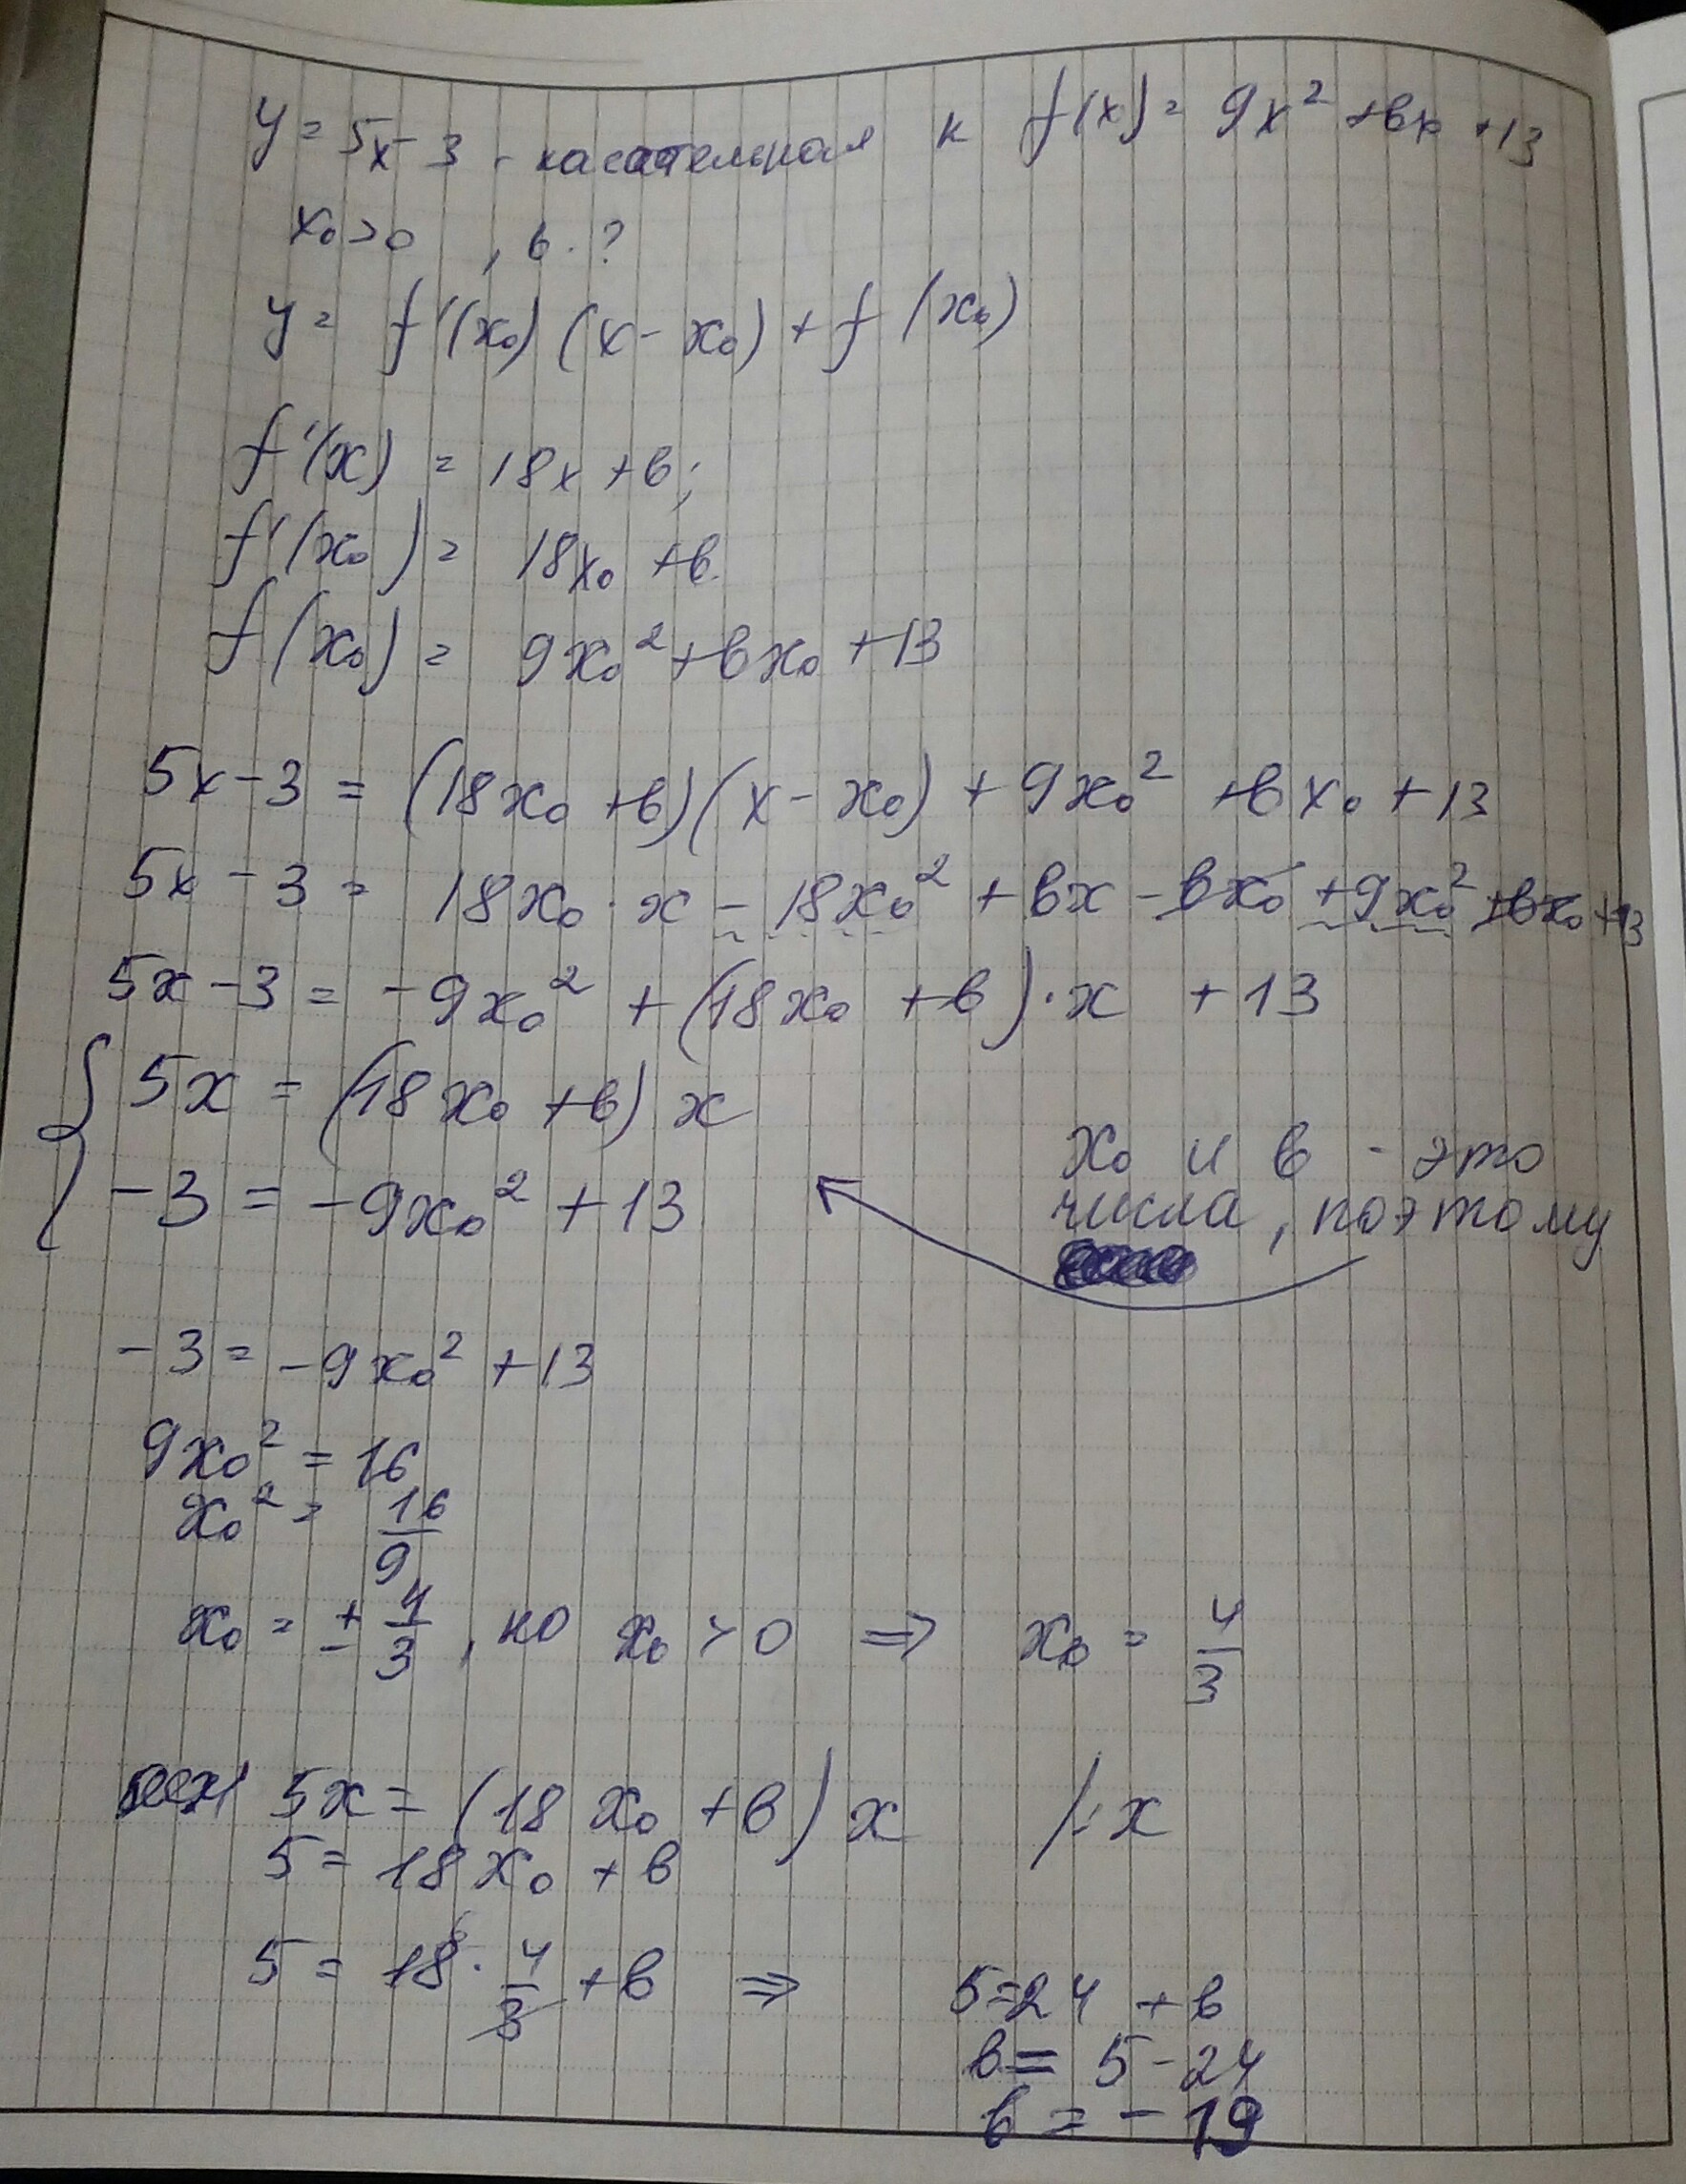 y = 5x - 3 - касательная к f(x) = 9x² + bx + 13
x₀ > 0 , b - ?
y = f'(x₀) (x - x₀) + f (x₀)
f'(x) = 18x + b;
f'(x₀) = 18x₀ + b
f(x₀) = 9x₀² + bx₀ + 13
5x - 3 = (18x₀ + b)(x - x₀) + 9x₀² + bx₀ + 13
5x - 3 = 18x₀ · x - 18x₀² + bx - bx₀ + 9x₀² + bx₀ + 13
5x - 3 = -9x₀² + (18x₀ + b) · x + 13
{ 5x = (18x₀ + b) x
-3 = -9x₀² + 13
x₀ и b - это
числа, поэтому
-3 = -9x₀² + 13
9x₀² = 16
x₀² = 16/9
x₀ = ± 4/3 , но x₀ > 0 ⇒ x₀ = 4/3
5x = (18 x₀ + b) x /: x
5 = 18x₀ + b
5 = 18 6 · 4/3 + b ⇒ 5 = 24 + b
b = 5 - 24
b = - 19